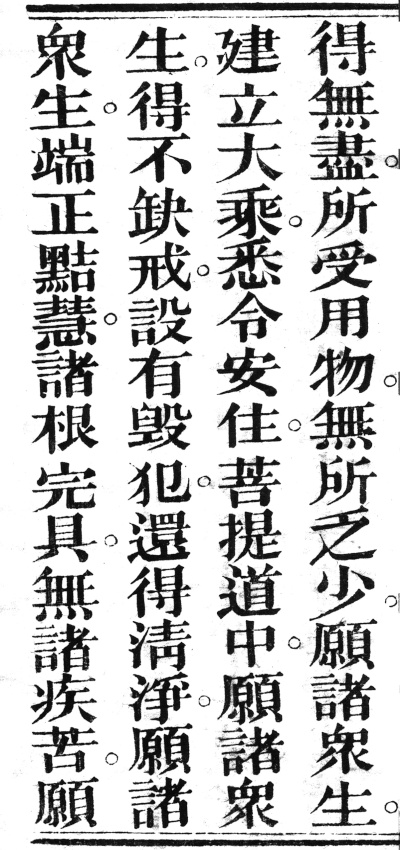 得無盡。所受用物。無所乏少。願諸衆生。
建立大乘。悉令安住。菩提道中。願諸衆
生。得不缺戒。設有毀犯。還得清淨。願諸
衆生。端正黠慧。諸根完具。無諸疾苦。願